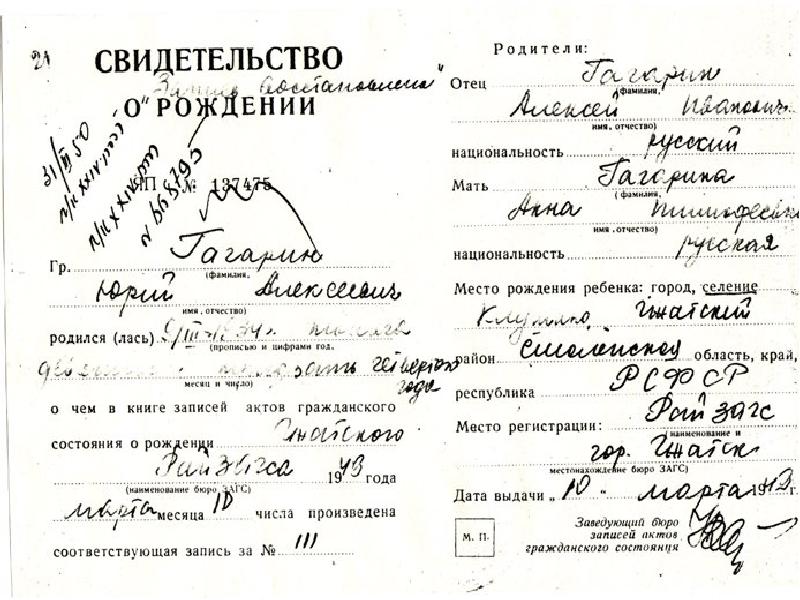 21
СВИДЕТЕЛЬСТВО
"Запись восстановлена"
О РОЖДЕНИИ
31/III 50
ЯП № 137475
№ 868795
Гр. Гагарин
(фамилия,
Юрий Алексеевич
имя, отчество)
родился (лась) 9/III-1934г.
(прописью и цифрами год,
тридцать четвертого
года
месяц и число)
о чем в книге записей актов гражданского
состояния о рождении Гжатского
Райзагса 1943 года
(наименование бюро ЗАГС)
марта месяца 10 числа произведена
соответствующая запись за № 111
Родители:
Отец Гагарин
(фамилия,
Алексей Иванович
имя, отчество)
национальность русский
Мать Гагарина
(фамилия,
Анна Тимофеевна
имя, отчество)
национальность русская
Место рождения ребенка: город, селение
Клушино Гжатский
район Смоленской область, край,
республика РСФСР
Место регистрации: Райзагс
(наименование и
гор. Гжатск
местонахождение бюро ЗАГС)
Дата выдачи „ 10 " марта 1943 г.
М. П.
Заведующий бюро
записей актов
гражданского состояния